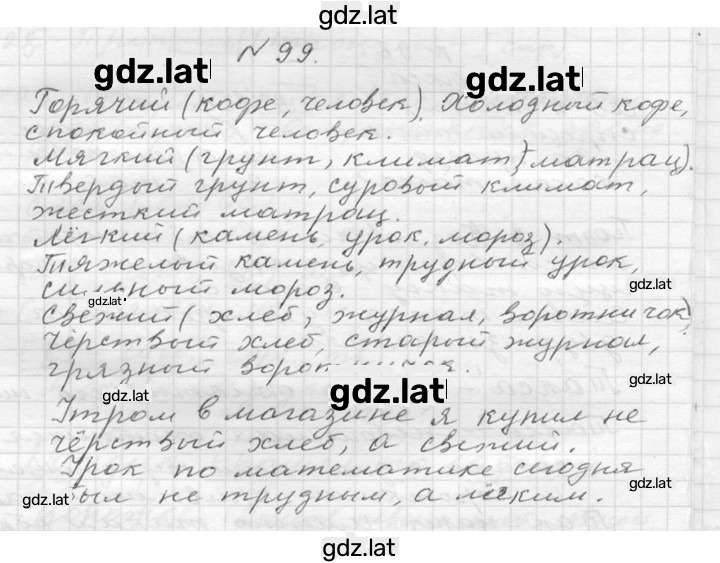 gdz.lat
№ 99.
gdz.lat
gdz.lat
Горячий (кофе, человек). Холодный кофе,
спокойный человек.
Мягкий (грунт, климат, матрац).
Твердый грунт, суровый климат,
жесткий матрац.
Лёгкий (камень, урок, мороз).
Тяжелый камень, трудный урок,
gdz.lat
сильный мороз.
gdz.lat
Свежий (хлеб, журнал, воротничок)
Чёрствый хлеб, старый журнал,
грязный воротничок.
gdz.lat
gdz.lat
gdz.lat
Утром в магазине я купил не
чёрствый хлеб, а свежий.
Урок по математике сегодня
был не трудным, а лёгким.
gdz.lat
gdz.lat
gdz.lat